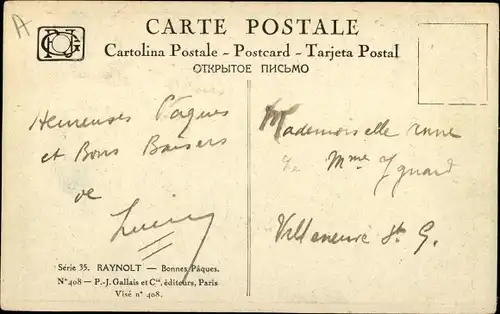 A
CARTE POSTALE
Cartolina Postale - Postcard - Tarjeta Postal
ОТКРЫТОЕ ПИСЬМО
Heureuses Pâques
et Bons Baisers
de
Mademoiselle Anne
de Mme Ygnard
Villeneuve St G.
Série 35. RAYNOLT — Bonnes Pâques.
N° 408 — P.-J. Gallais et Cie, éditeurs, Paris
Visé n° 408.